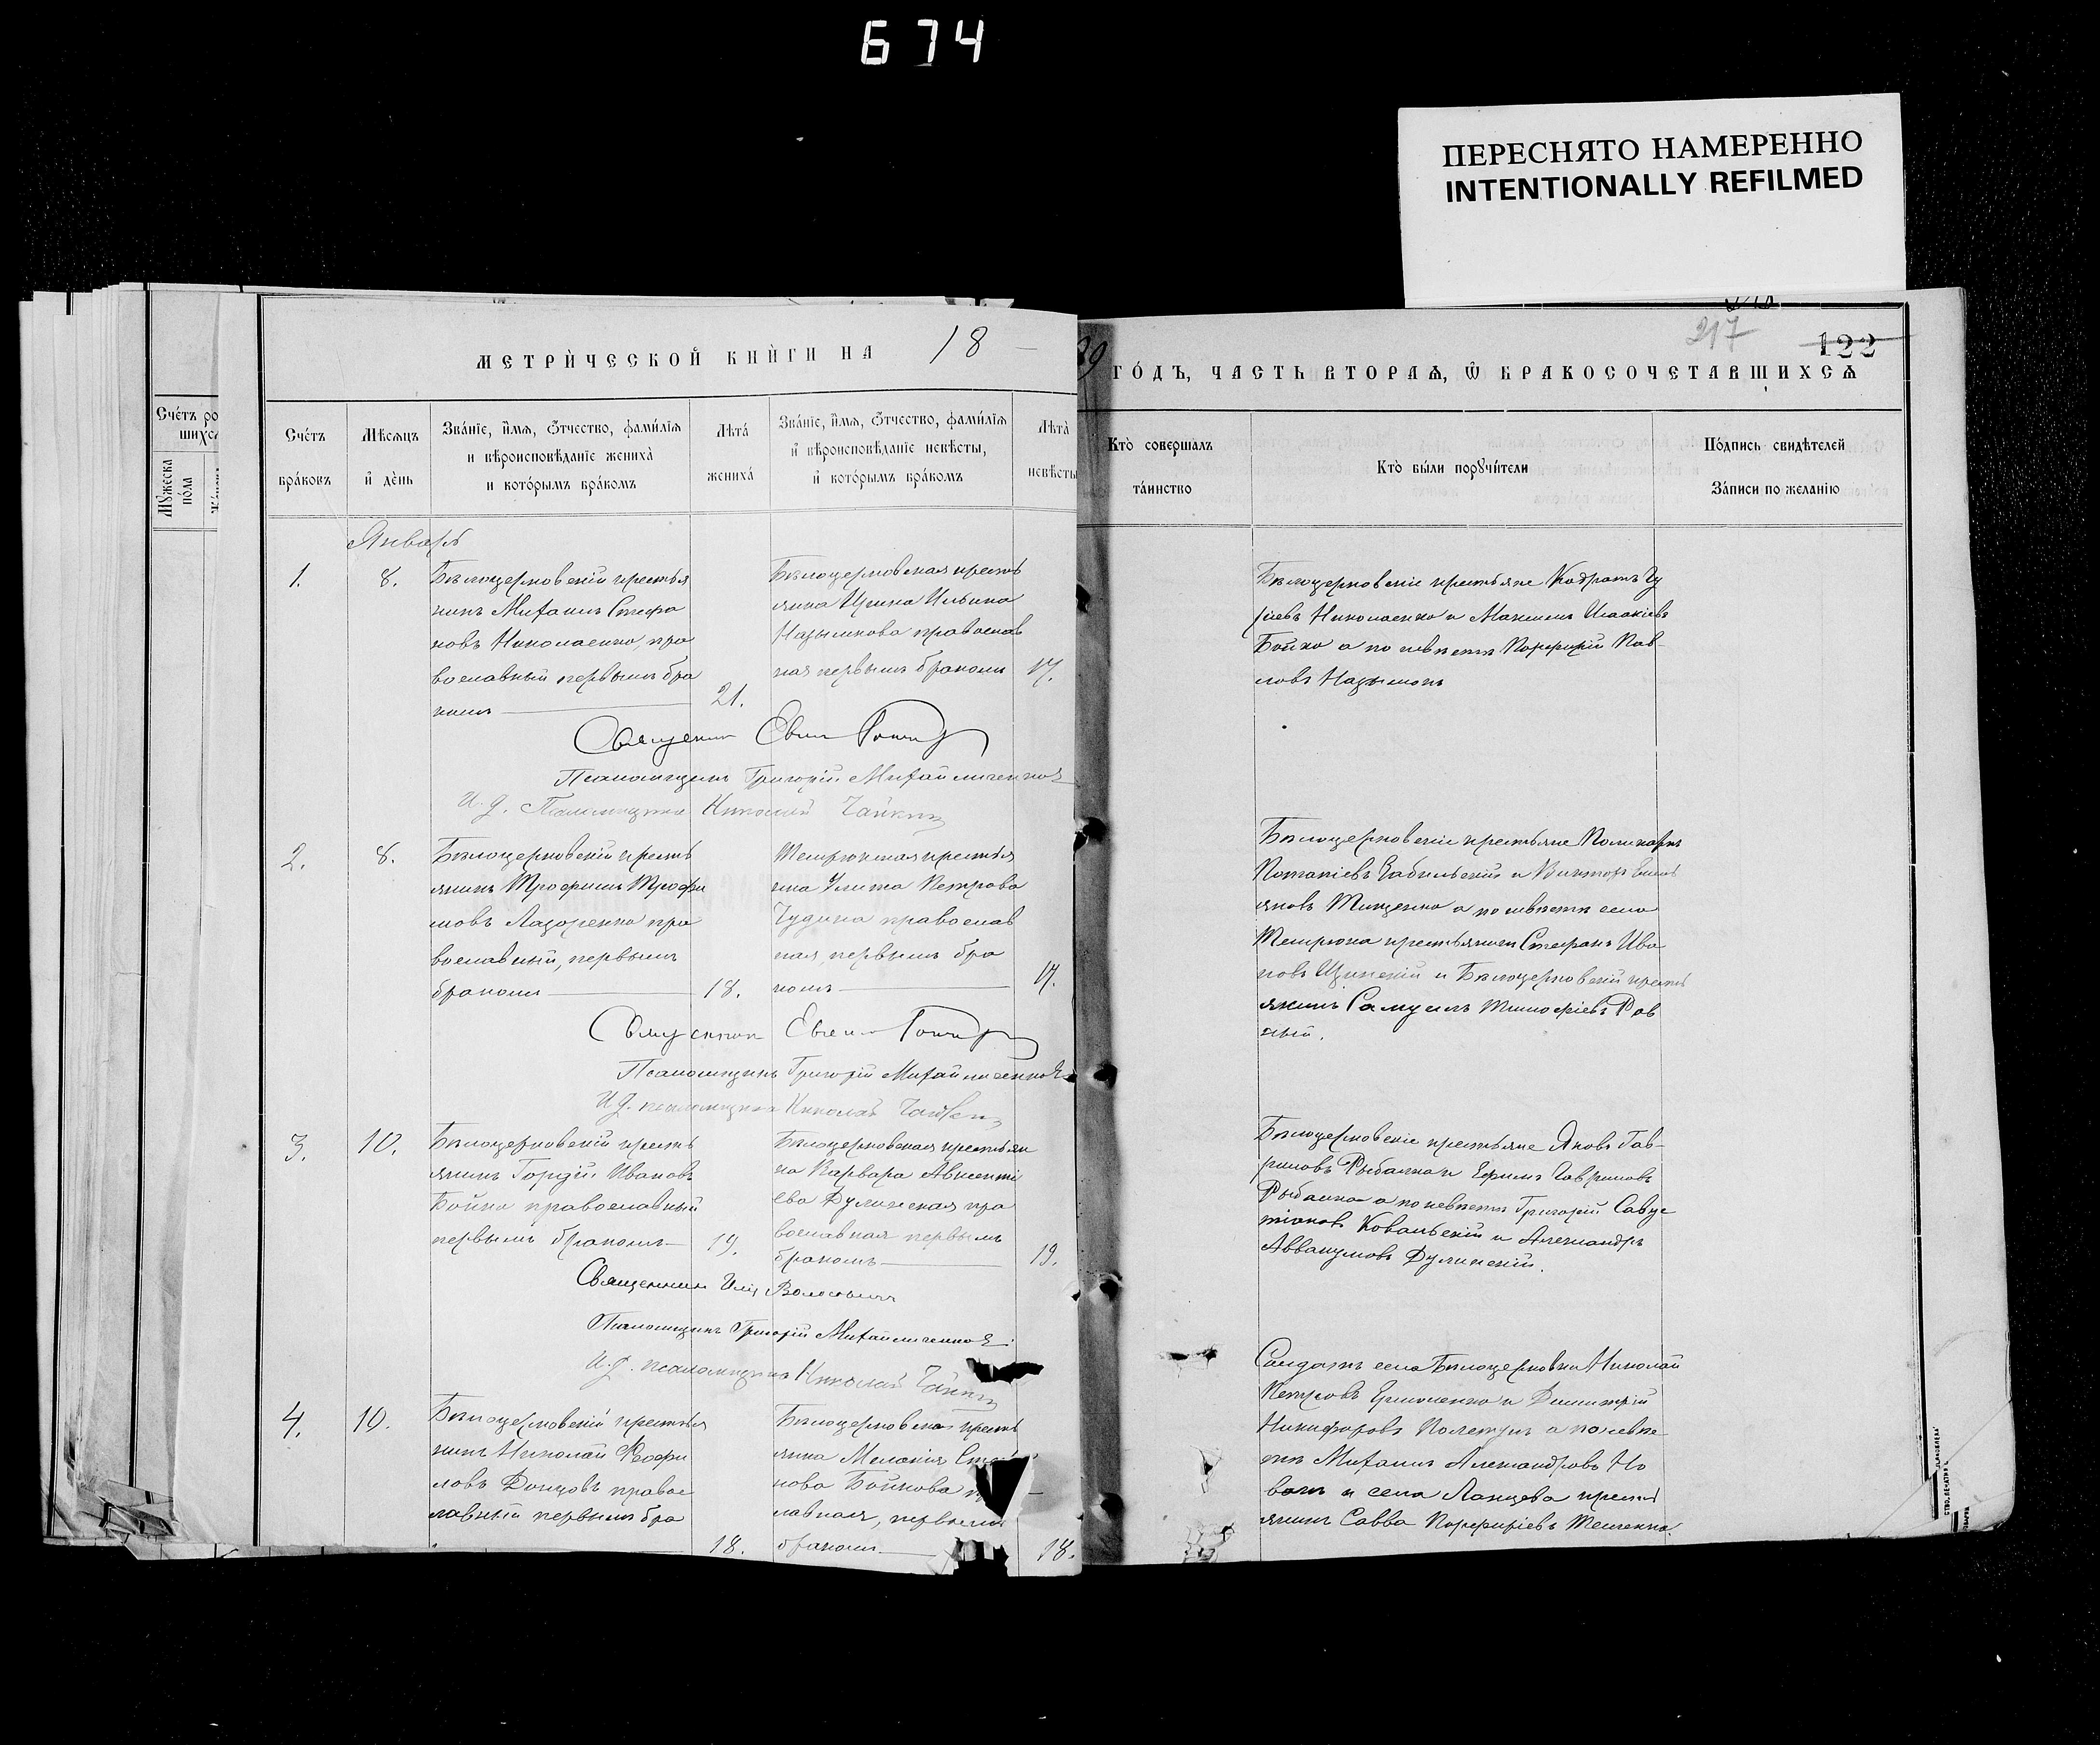 674
ПЕРЕСНЯТО НАМЕРЕННО
INTENTIONALLY REFILMED
МЕТРИ́ЧЕСКОЙ КНИ́ГИ НА 18
39 ГО́ДЪ, ЧАСТЬ ВТОРАѦ, Ѿ БРАКОСОЧЕТАВШИХСѦ
217
122
Сче́тъ ро
шихсѧ
Мꙋжеска по́ла
Сче́тъ бра́ковъ
Мѣ́сѧцъ и҆ де́нь
Зва́нїе, и҆́мѧ, ѻ҆́тчество, фами́лїѧ
и вѣроисповѣ́данїе жениха̀
и кото́рымъ бра́комъ
Лѣта̀ жениха̀
Зва́нїе, и҆́мѧ, ѻ҆́тчество, фами́лїѧ
и҆ вѣроисповѣ́данїе невѣ́сты,
и҆ кото́рымъ бра́комъ
Лѣта̀ невѣ́сты
Кто̀ соверша́лъ та́инство
Кто̀ бы́ли порꙋчи́тели
По́дпись свидѣ́телей
За́писи по жела́нїю
Январь
1.
8.
Бѣлоцерковскій крестья
нинъ Михаилъ Стефа
новъ Николаенко, пра
вославный первымъ бра
комъ
21.
Бѣлоцерковская кресть
янка Ирина Ильина
православ
ная первымъ бракомъ
17.
Бѣлоцерковскіе крестьяне Кодратъ Гу
ріевъ Николаенко и Максимъ Исаакіевъ
Бойко а по невѣстѣ Порфирій Пав-
ловъ
Священникъ
Псаломщикъ Григорій Михайличенко
И. д. Псаломщика Николай Чайкинъ
2.
8.
Бѣлоцерковскій кресть
янинъ Трофимъ Трофи
мовъ Лазоренко пра
вославный, первымъ
бракомъ
18.
Темрюкская крестья
нка Улита Петрова
Чудина православ
ная, первымъ бра
комъ
17.
Бѣлоцерковскіе крестьяне Поликарпъ
Потапіевъ и Викторъ
яновъ Тищенко а по невѣстѣ села
Темрюка крестьянинъ Стефанъ Ива
новъ и Бѣлоцерковскій кресть
янинъ Самуилъ Тимофіевъ Ров
ный.
Священникъ
Псаломщикъ Григорій Михайличенко
И. д. псаломщика Николай Чайкинъ
3.
10.
Бѣлоцерковскій кресть
янинъ Гордій Ивановъ
Бойко православный
первымъ бракомъ
19.
Бѣлоцерковская крестьян
ка Варвара Авксенті
ева Дулинская пра
вославная первымъ
бракомъ
19.
Бѣлоцерковскіе крестьяне Яковъ Гав-
риловъ Рыбалка и Ефимъ Гавриловъ
Рыбалка а по невѣстѣ Григорій Савус
тіановъ Ковальскій и Александръ
Аввакумовъ Дулинскій.
Священникъ
Псаломщикъ Григорій Михайличенко
И. д. псаломщика Николай Чайкинъ
4.
10.
Бѣлоцерковскій крестья
нинъ Николай Феофи
ловъ Донцовъ правос
лавный первымъ бра
18.
Бѣлоцерковская кресть
янка Меланія
нова Бойкова
лавная, первымъ
бракомъ
18.
Солдатъ села Бѣлоцерковки Николай
Петровъ Ермоленко и Димитрій
Никифоровъ а по невѣс
тѣ Михаилъ Александровъ
и села Ланцева кресть
янинъ Савва Порфиріевъ